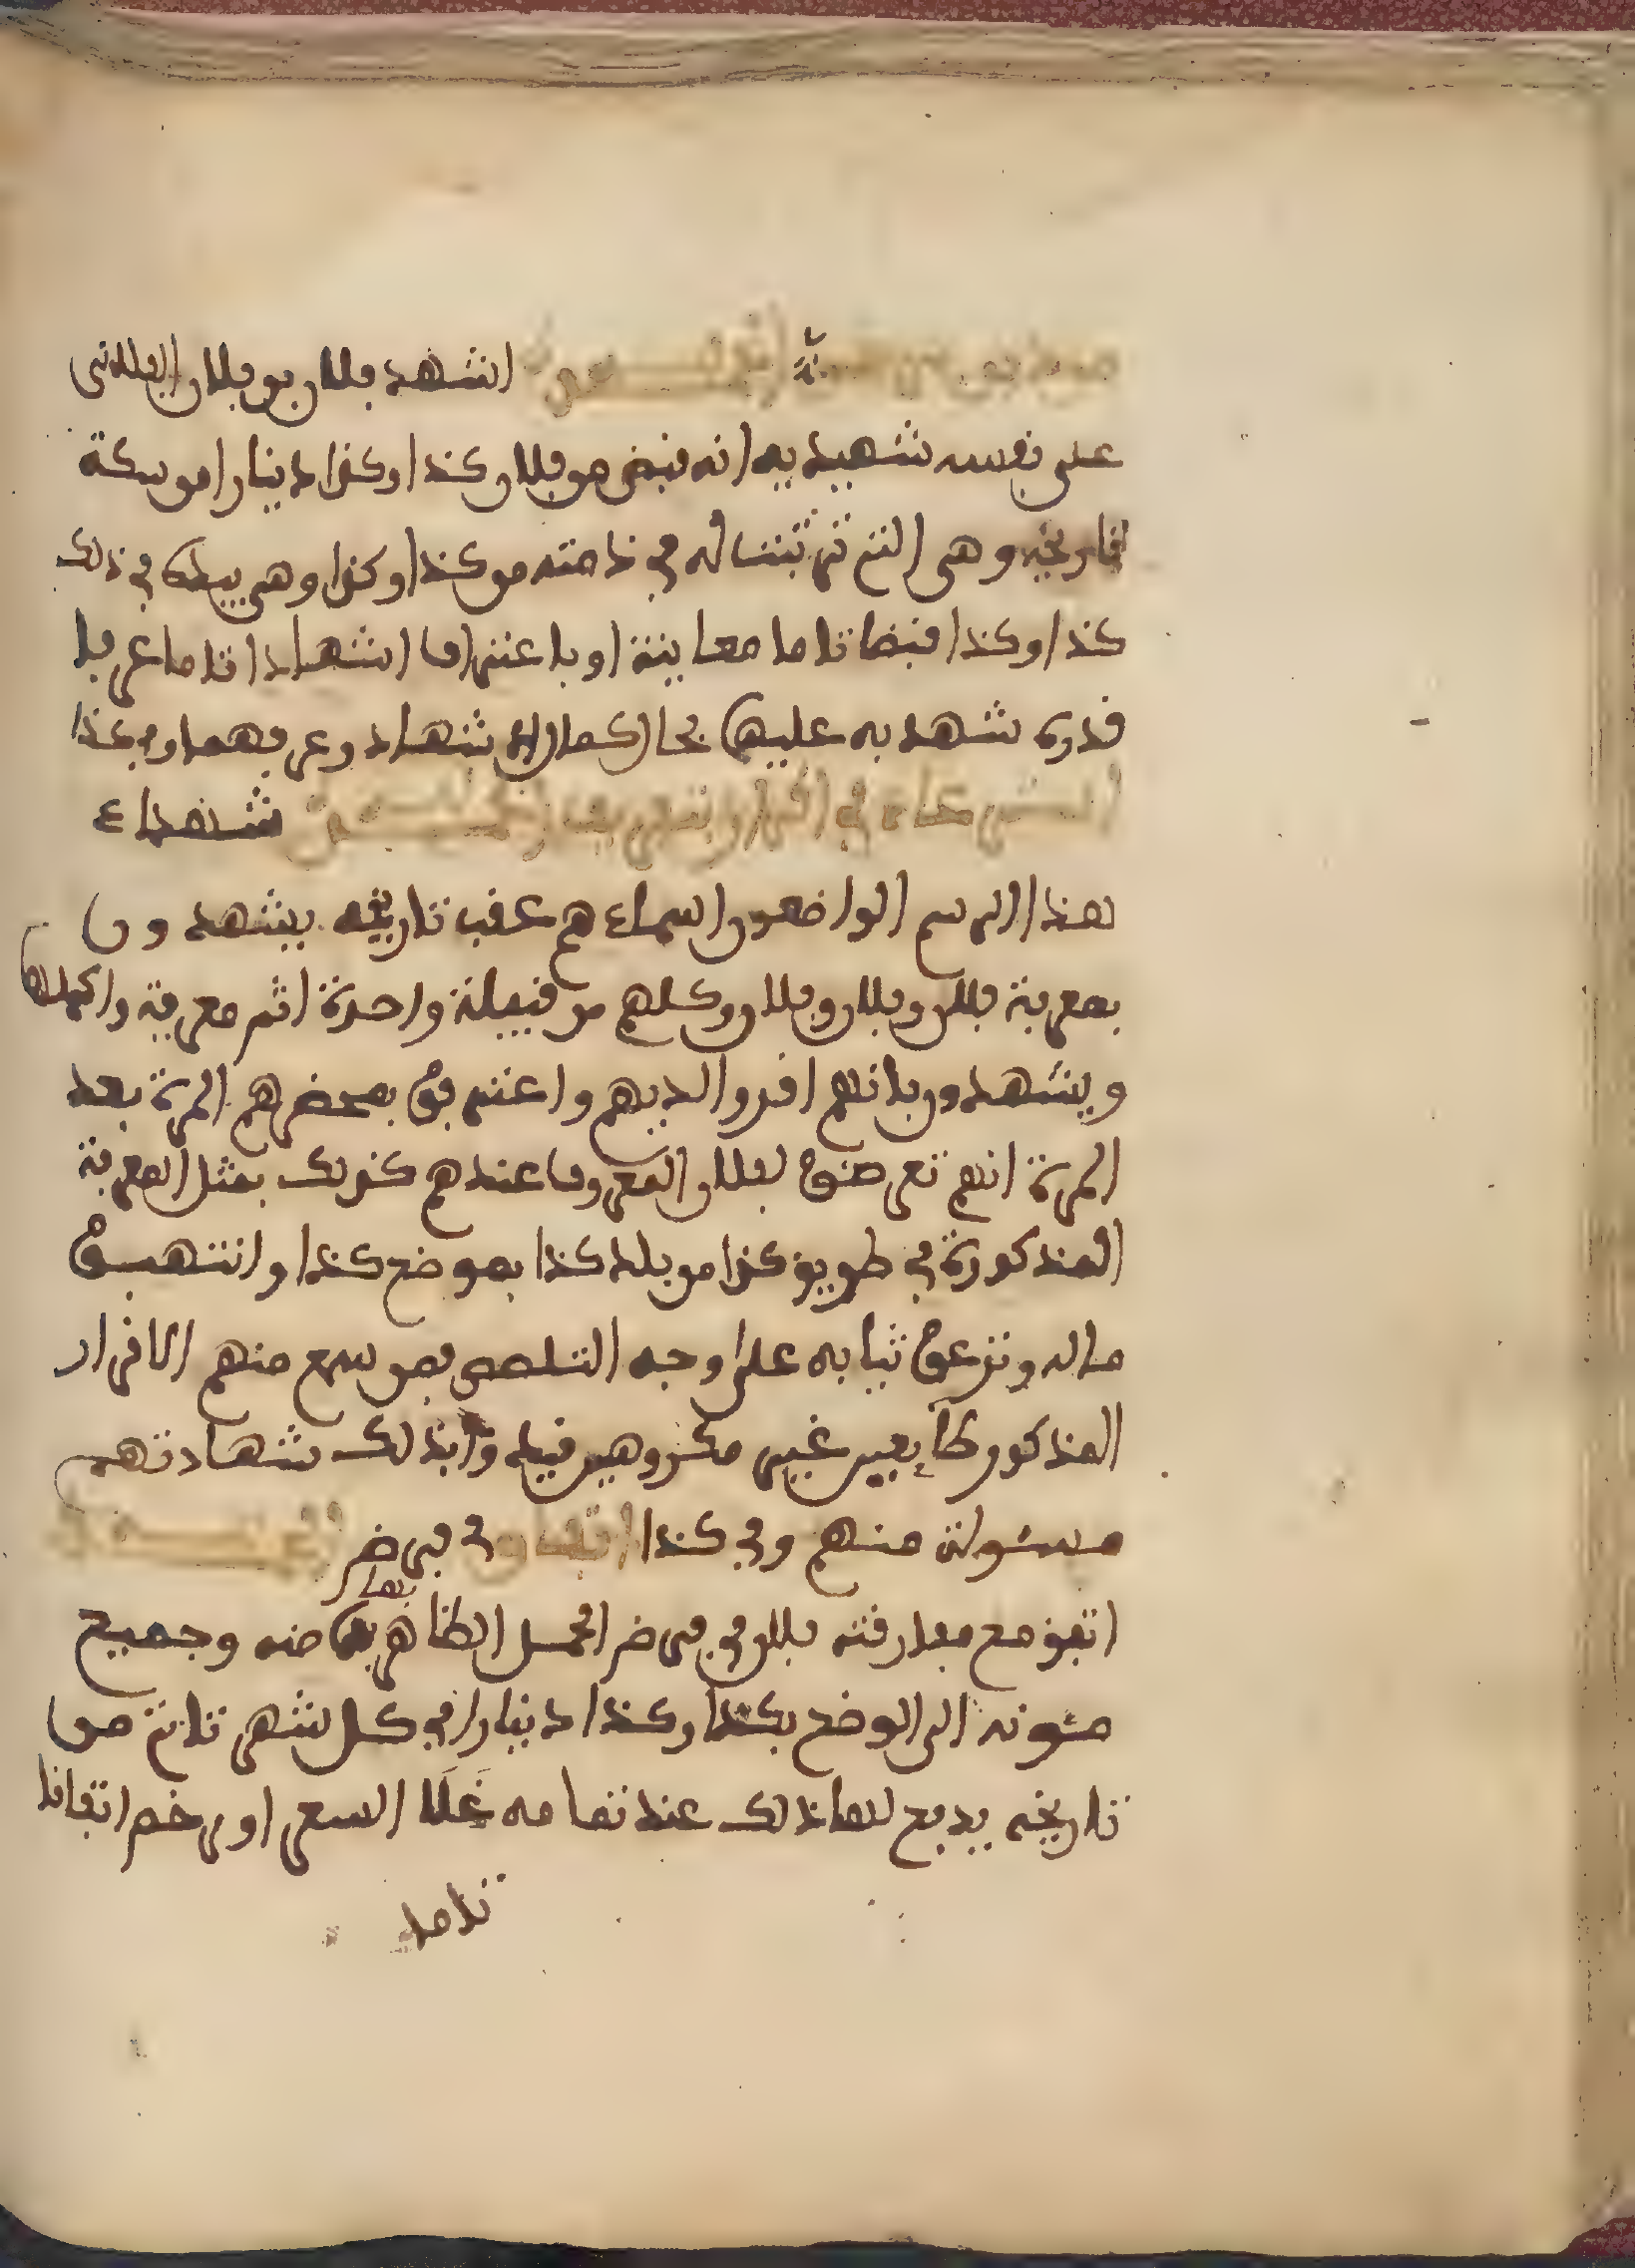 اشهد فلان بن فلان الفلاني
على نفسه شهيديه انه قبض من فلان كذا وكذا دينارا من سكة
تاريخه وهي التي ترتبت له في ذمته من كذا وكذا وهي بيده في ذلك
كذا وكذا قبضا تاما معاينة او باعترافه اشهادا تاما عرفا
قدره شهد به عليهما بحال كمال الاشهاد وعرفهما وفي كذا
استرعاء في اقرار شهداء
هذا الرسم الواضعون اسماءهم عقب تاريخه يشهدون
بمعرفة فلان وفلان وفلان وكلهم من قبيلة واحدة اتم معرفة واكملها
ويشهدون بانهم اقروا لديهم واعترفوا بمحضرهم المرة بعد
المرة انهم تعرضوا لفلان المعروف عندهم كذلك بمثل المعرفة
المذكورة في طريق كذا من بلد كذا بموضع كذا وانتهبوا
ماله ونزعوا ثيابه على وجه التلصص فمن سمع منهم الاقرار
المذكور طايعين غير مكروهين قيد بذلك شهادتهم
مسئولة منهم وفي كذا اتفاق في فرض الحمل
اتفق مع مفارقته فلانة في فرض الحمل الظاهر بها منه وجميع
مئونه الى الوضع بكذا وكذا دينارا في كل شهر تات من
تاريخه يدفع لها ذلك عند تمامه غَلَا السعر او رخص اتفاقا
تاما